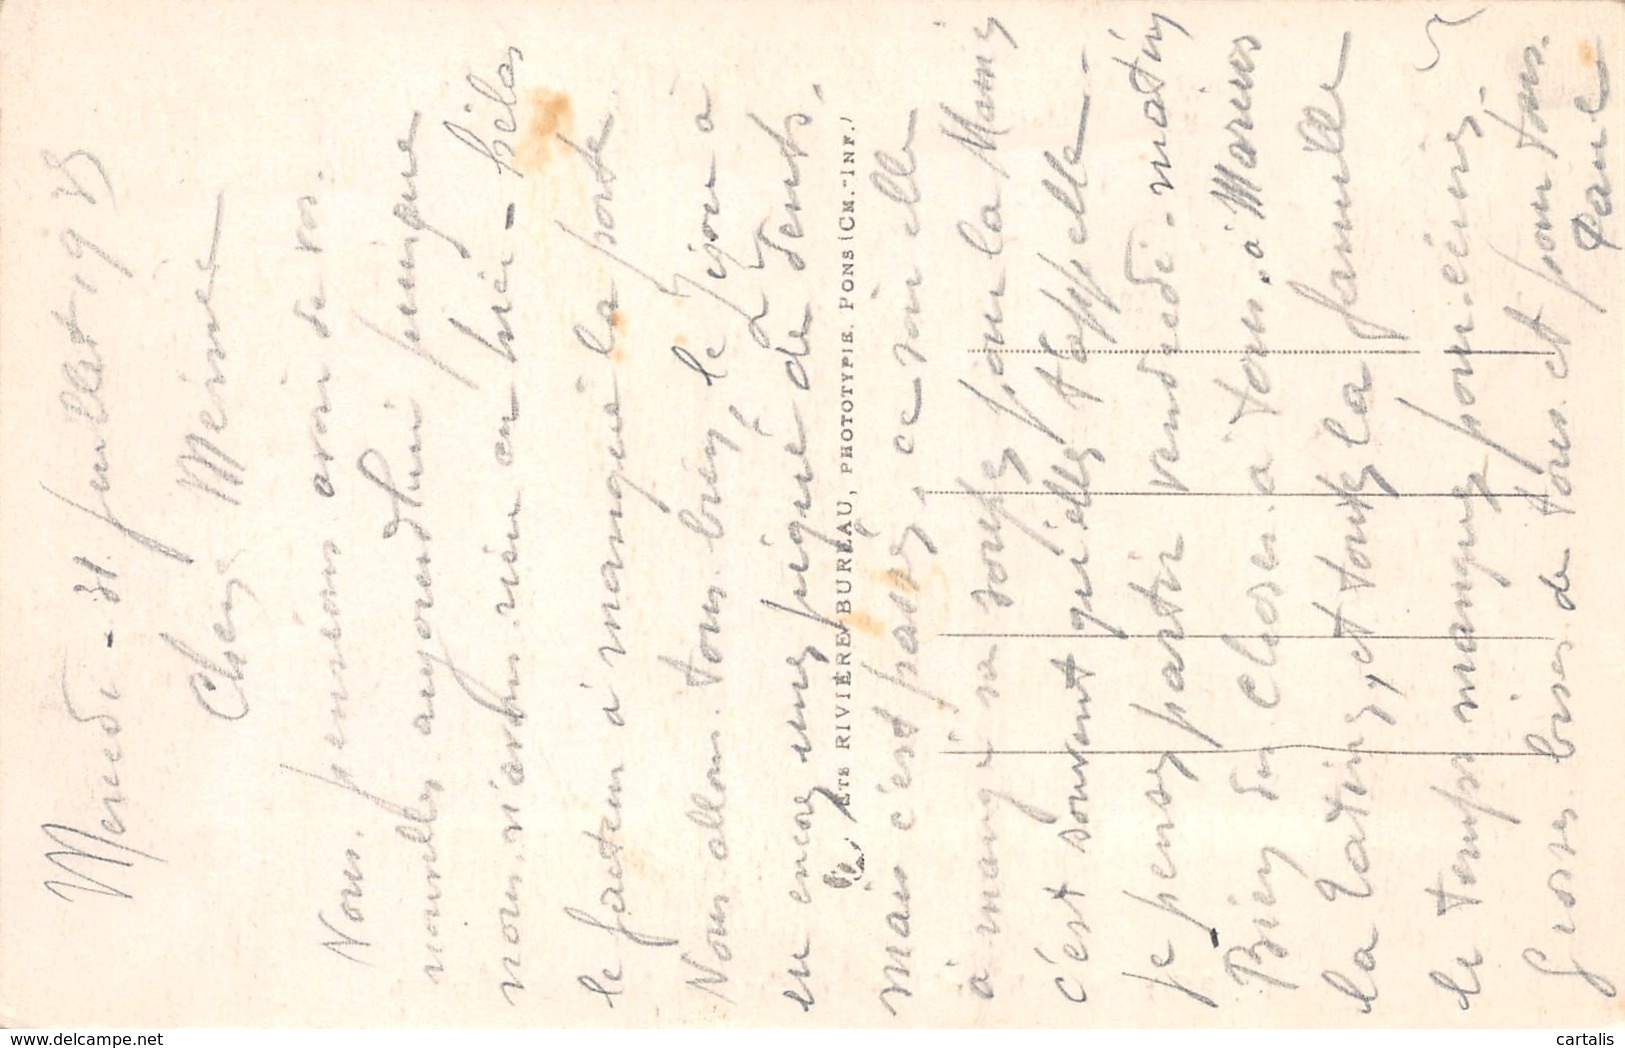 Mercredi - 31 juillet 19
Cher Mémé
Nous pensions avoir de vos
nouvelles aujourd'hui puisque
nous n'avons rien eu hier - hélas
le facteur à manqué la porte
Nous allons tous bien, le Jijou à
eu encore une piqure de dents,
mais c'est passé, ce soir elle
à mangé sa soupe pour la Mamie
c'est souvent qu'elle t'appelle -
je pense partir vendredi matin
Bien des choses à tous, à Marius
la Tatin, et toute la famille
le temps manque pour écrire -
Grosses bises de tous et pour tous.
ETS RIVIÈRE-BUREAU, PHOTOTYPIE. PONS (CH.-INF.)
cartalis